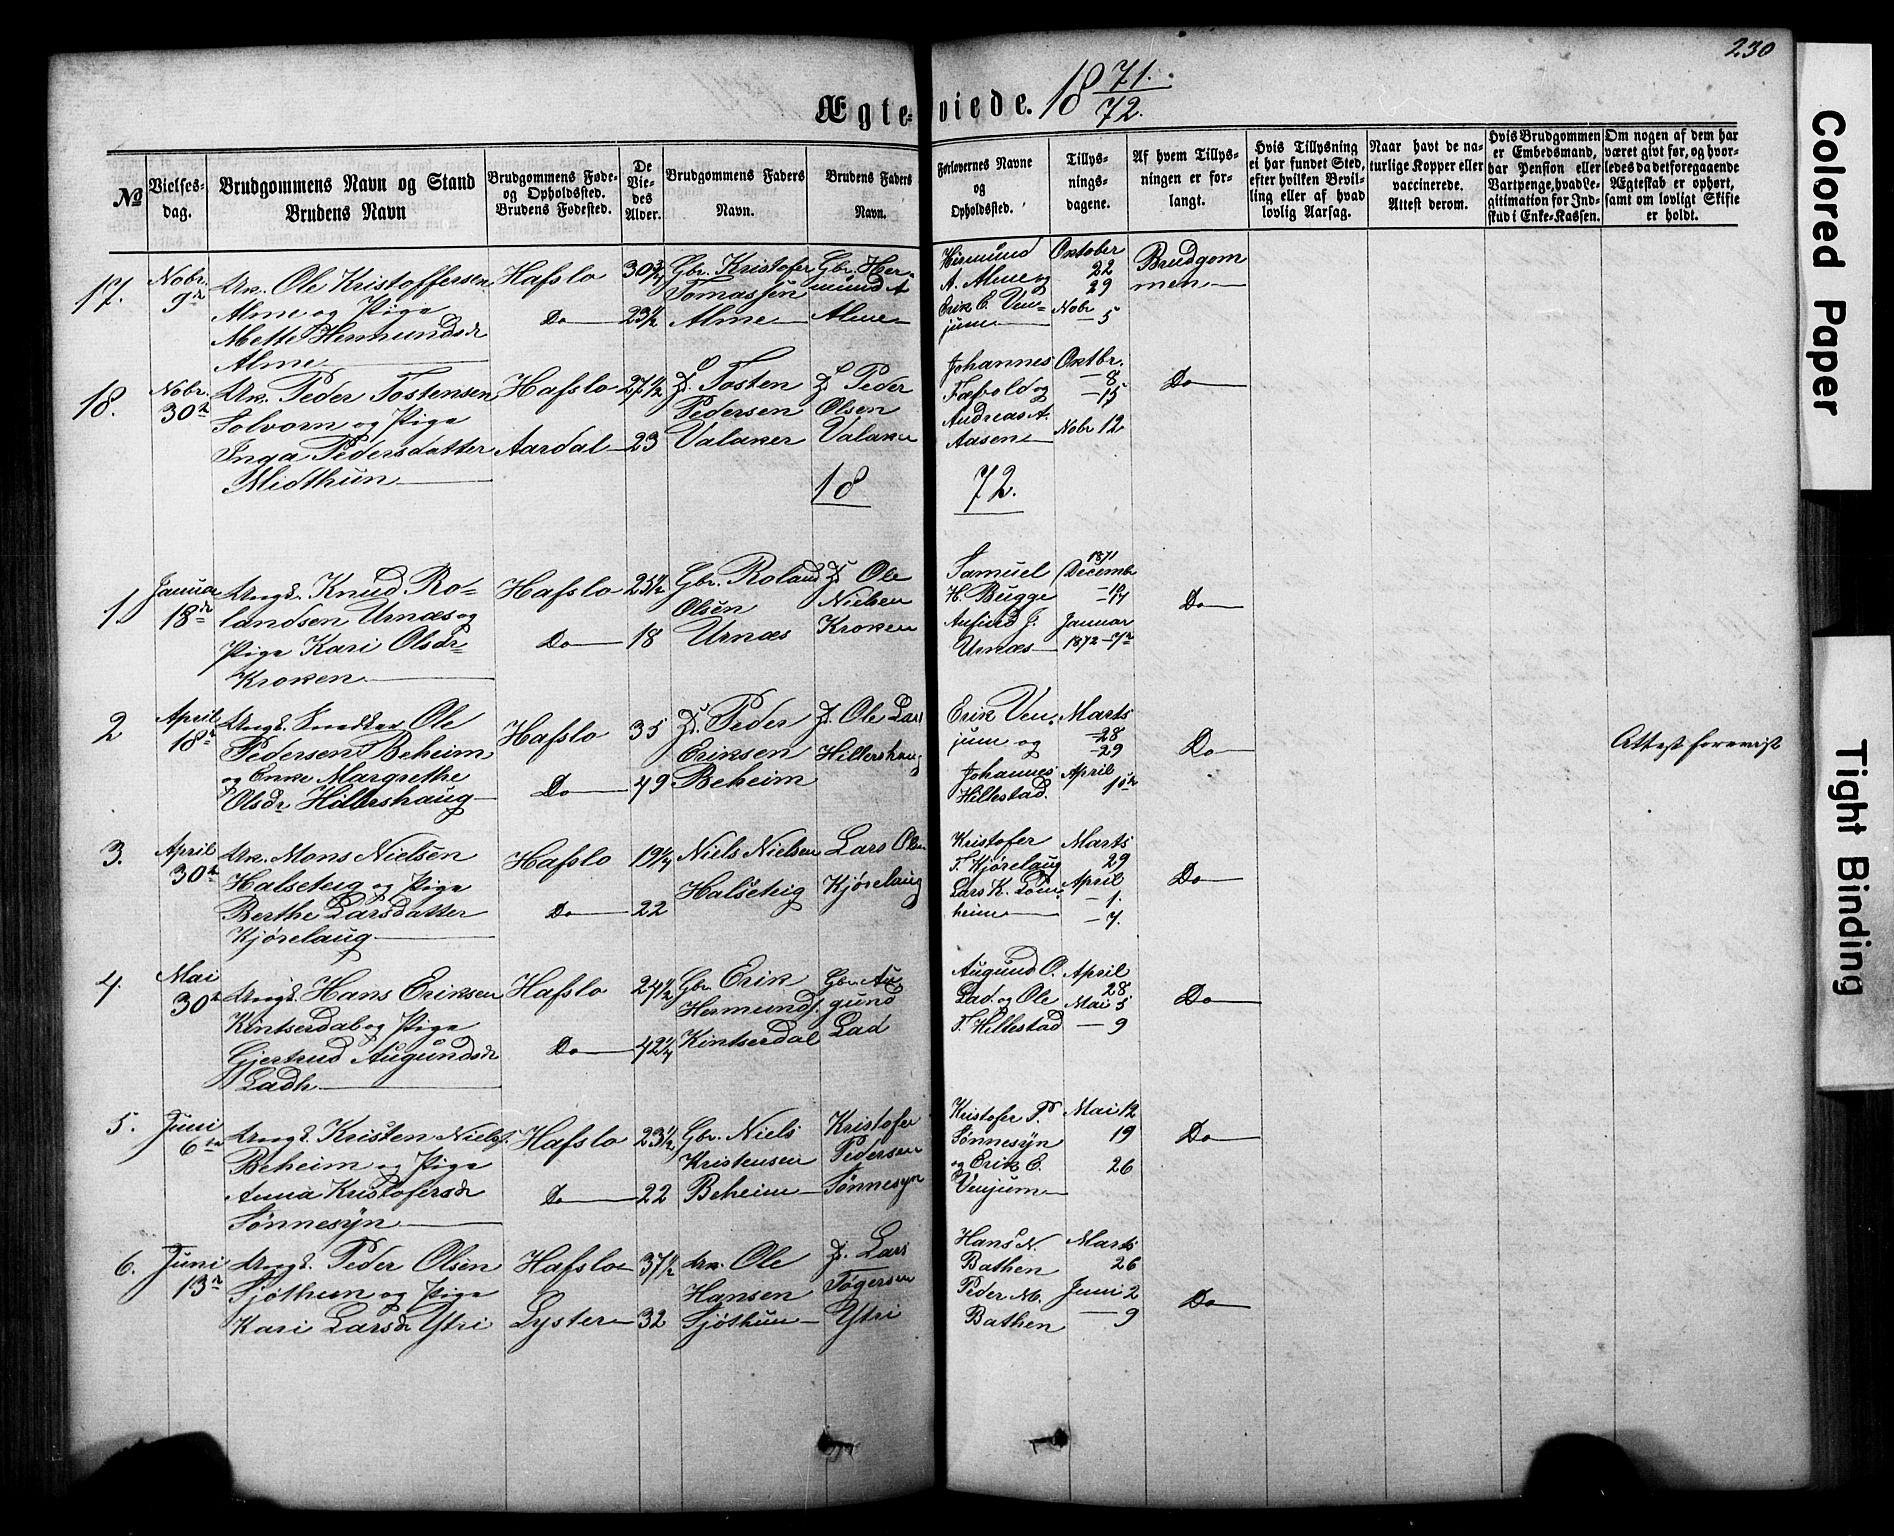 230
Ægteviede. 18 71./72.
№
Vielses-
dag.
Brudgommens Navn og Stand
Brudens Navn
Brudgommens Føde-
og Opholdssted.
Brudens Fødested.
De
Vie-
des
Alder.
Brudgommens Faders
Navn.
Brudens Faders
Navn.
Forlovernes Navne
og
Opholdssted.
Tillys-
nings-
dagene.
Af hvem Tillys-
ningen er for-
langt.
Hvis Tillysning
ei har fundet Sted,
efter hvilken Bevil-
ling eller af hvad
lovlig Aarsag.
Naar havt de na-
turlige Kopper eller
vaccinerede.
Attest derom.
Hvis Brudgommen
er Embedsmand,
har Pension eller
Vartpenge, hvad Le-
gitimation for Ind-
skud i Enke-Kassen.
Om nogen af dem har
været gift før, og hvor-
ledes da det foregaaende
Ægteskab er ophørt,
samt om lovligt Skifte
er holdt.
17.
Nobr.
9de
Uk. Ole Kristoffersen
Alme og Pige
Mette Hermundsdr
Alme
Hafslo
Do
30 3/4
23 1/2
Gbr. Kristofer
Tomassen
Alme
Gbr. Her-
mund A
Alme
Hermund
A. Alme og
Erik E. Ven-
jum
Oktober
22
29
Nobr
5
Brudgom
men
18.
Nobr.
30te
Uk. Peder Tostensen
Solvorn og Pige
Inga Pedersdatter
Midthun
Hafslo
Aardal
27 1/2
23
Tosten
Pedersen
Valaker
Peder
Olsen
Valaker
Johannes
Fæbold og
Andreas A.
Aasen
Oktbr.
8
15
Nobr 12
Do
18 72.
1.
Januar
18de
Ungk. Knud Ro-
landsen Urnæs og
Pige Kari Olsdr
Kroken
Hafslo
Do
25 1/2
18
Gbr. Roland
Olsen
Urnæs
Ole
Nielsen
Kroken
Samuel
H. Bugge
Anfind J.
Urnæs
1871
Decemb
17
Januar
1872 7de
Do
2
April
18de
Ungk. Ole
Pedersen Beheim
og Enke Margrethe
Olsdr Hillershaug
Hafslo
Do
35
49
Peder
Eriksen
Beheim
Ole Lars
Hillershaug
Erik Ven-
jum og
Johannes
Hillestad.
Marts
28
29
April
Do
Attest forevist
3.
April
30te
Uk. Mons Nielsen
Halseteig og Pige
Berthe Larsdatter
Kjørelaug
Hafslo
Do
19 1/4
22
Niels Nielsen
Halseteig
Lars Olsen
Kjørelaug
Kristofer
T. Kjørelaug
Lars K. Lom-
heim
Marts
29
April
1.
7.
Do
4.
Mai
30te
Ungk. Hans Eriksen
Kintserdal og Pige
Gjertrud Augundsdr
Ladh
Hafslo
Do
24 1/2
42 1/4
Gbr. Erik
Hermunds.
Kintserdal
Gbr. Au-
gund
Lad
Augund O.
Lad og Ole
T. Hillestad
April
28
Mai 5
9
Do
5.
Juni
6te
Ungk. Kristen Niels.
Beheim og Pige
Anna Kristofersdr
Sønnesyn
Hafslo
Do
23 1/2
22
Gbr. Niels
Kristensen
Beheim
Kristofer
Pedersen
Sønnesyn
Kristofer P.
Sønnesyn
og Erik E.
Venjum
Mai 12
19
26
Do
6.
Juni
13de
Ungk. Peder Olsen
Sjøthun og Pige
Kari Larsdr Ytri
Hafslo
Lyster
37 1/2
32
Ole
Hansen
Sjøthun
Lars
Togersen
Ytri
Hans N.
Bathen
Peder M.
Bathen
Marts
26
Juni 2
9
Do
Colored Paper
Tight Binding